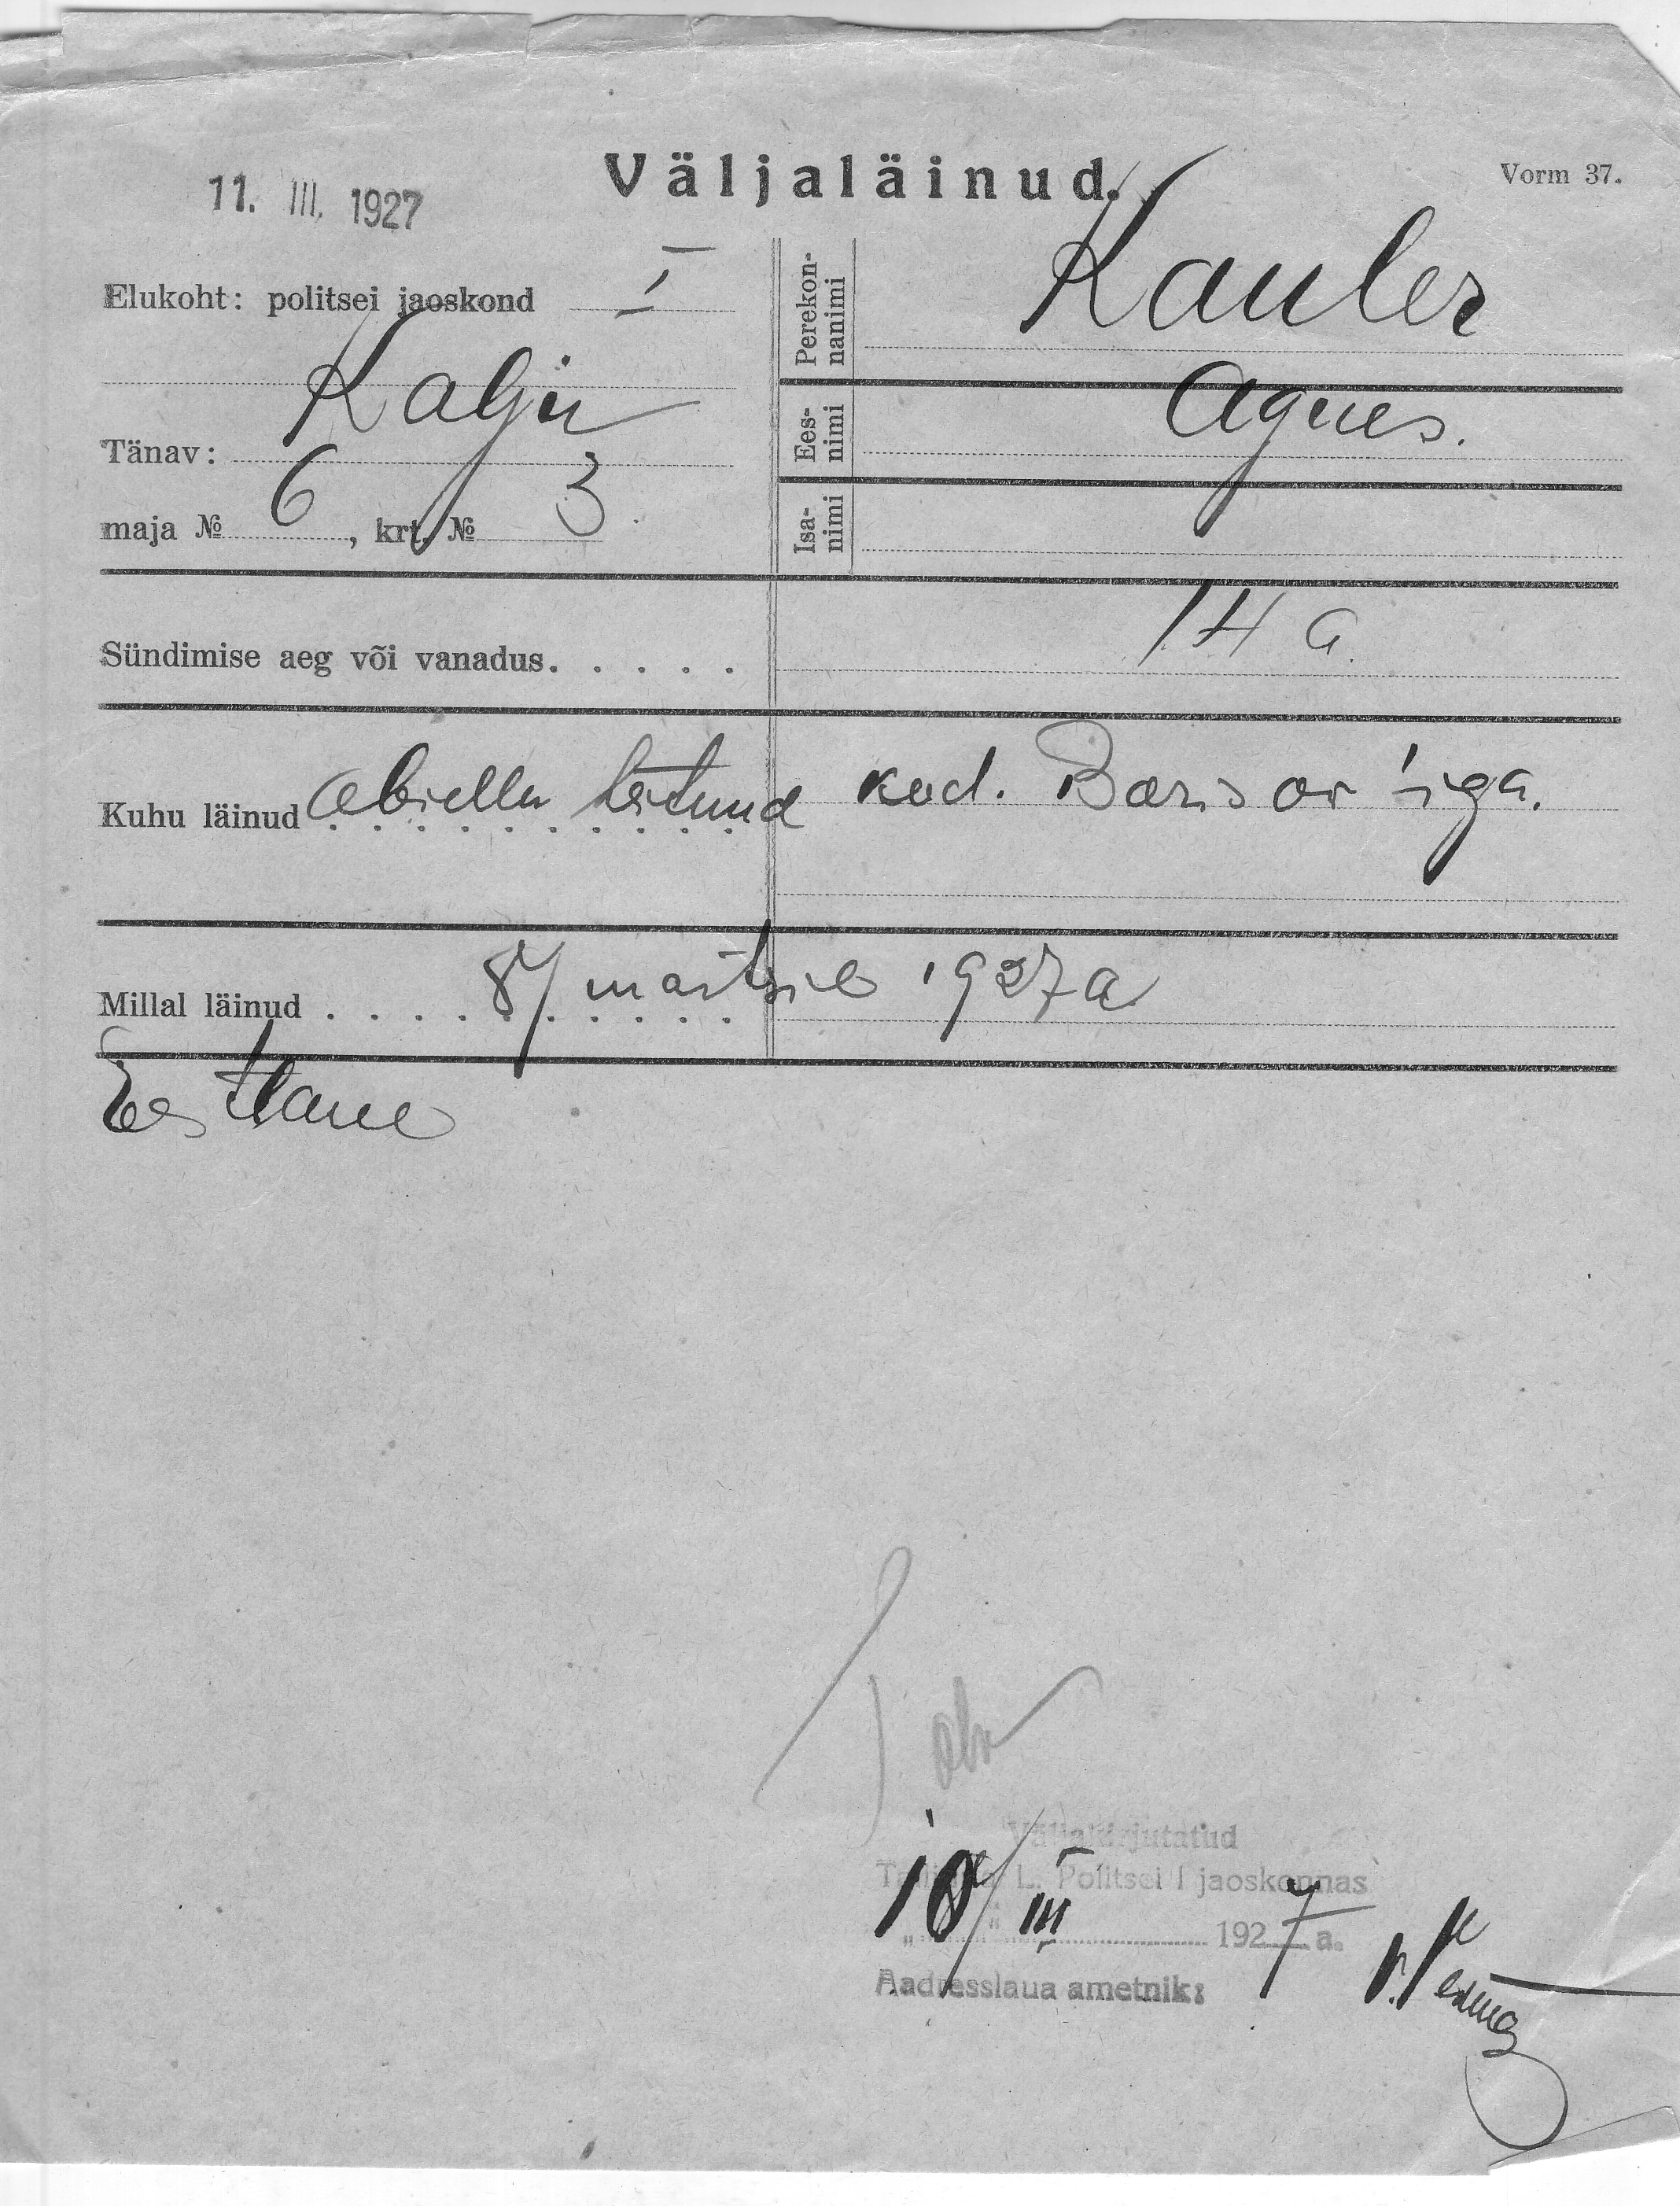 Väljaläinud.
Vorm 37.
11. III. 1927
Elukoht: politsei jaoskond I
Kalju
Tänav:
maja № 6, krt. № 3
Perekon-
nanimi
Kauler
Ees-
nimi
Agnes.
Isa-
nimi
Sündimise aeg või vanadus. . . . . . 14 a.
Kuhu läinud abiellu kod. Borisov'iga.
Millal läinud . . . . . . . . . . 8/ märtsil 1927 a
Eestlane
Väljakirjutatud
Tallinna L. Politsei I jaoskonnas
10/III 1927 a.
Aadresslaua ametnik: